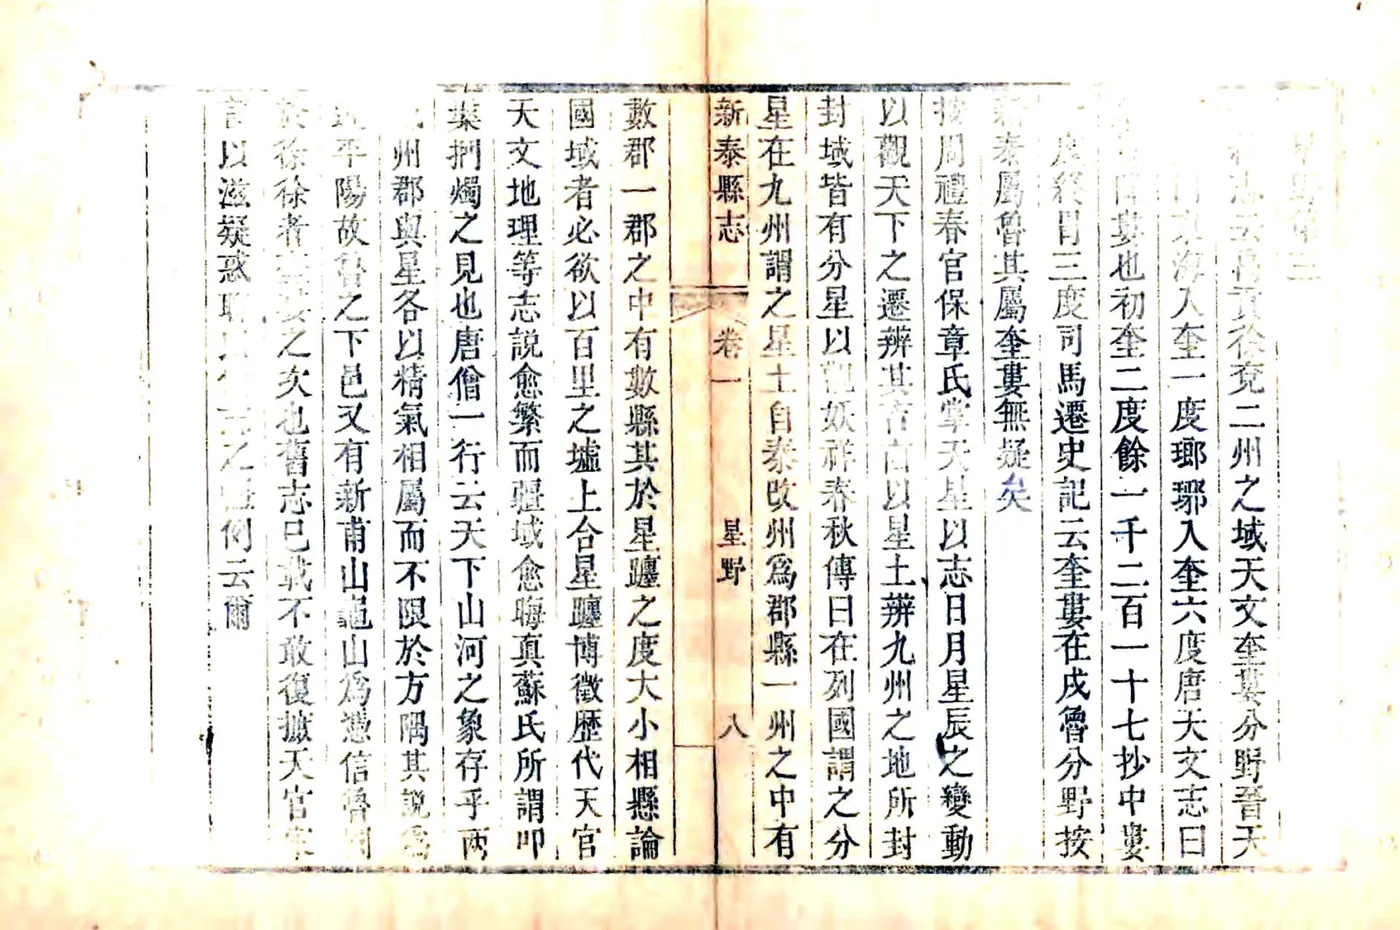 星野第三
志云禹貢徐兗二州之域天文奎婁分野晉天
東海入奎一度瑯琊入奎六度唐天文志曰
婁也初奎二度餘一千二百一十七抄中婁
度終胃三度司馬遷史記云奎婁在戌魯分野按
新泰屬魯其屬奎婁無疑矣
按周禮春官保章氏掌天星以志日月星辰之變動
以觀天下之遷辨其吉凶以星土辨九州之地所封
封域皆有分星以觀妖祥春秋傳曰在列國謂之分
星在九州謂之星土自秦改州為郡縣一州之中有
新泰縣志 卷一 星野 八
數郡一郡之中有數縣其於星躔之度大小相懸論
國域者必欲以百里之墟上合星躔博徵歷代天官
天文地理等志說愈繁而疆域愈晦真蘇氏所謂叩
槃捫燭之見也唐僧一行云天下山河之象存乎兩
州郡與星各以精氣相屬而不限於方隅其說為
平陽故魯之下邑又有新甫山龜山為憑信魯
於徐徐者婁之次也舊志已載不敢復摭天官家
言以滋疑惑之例云爾